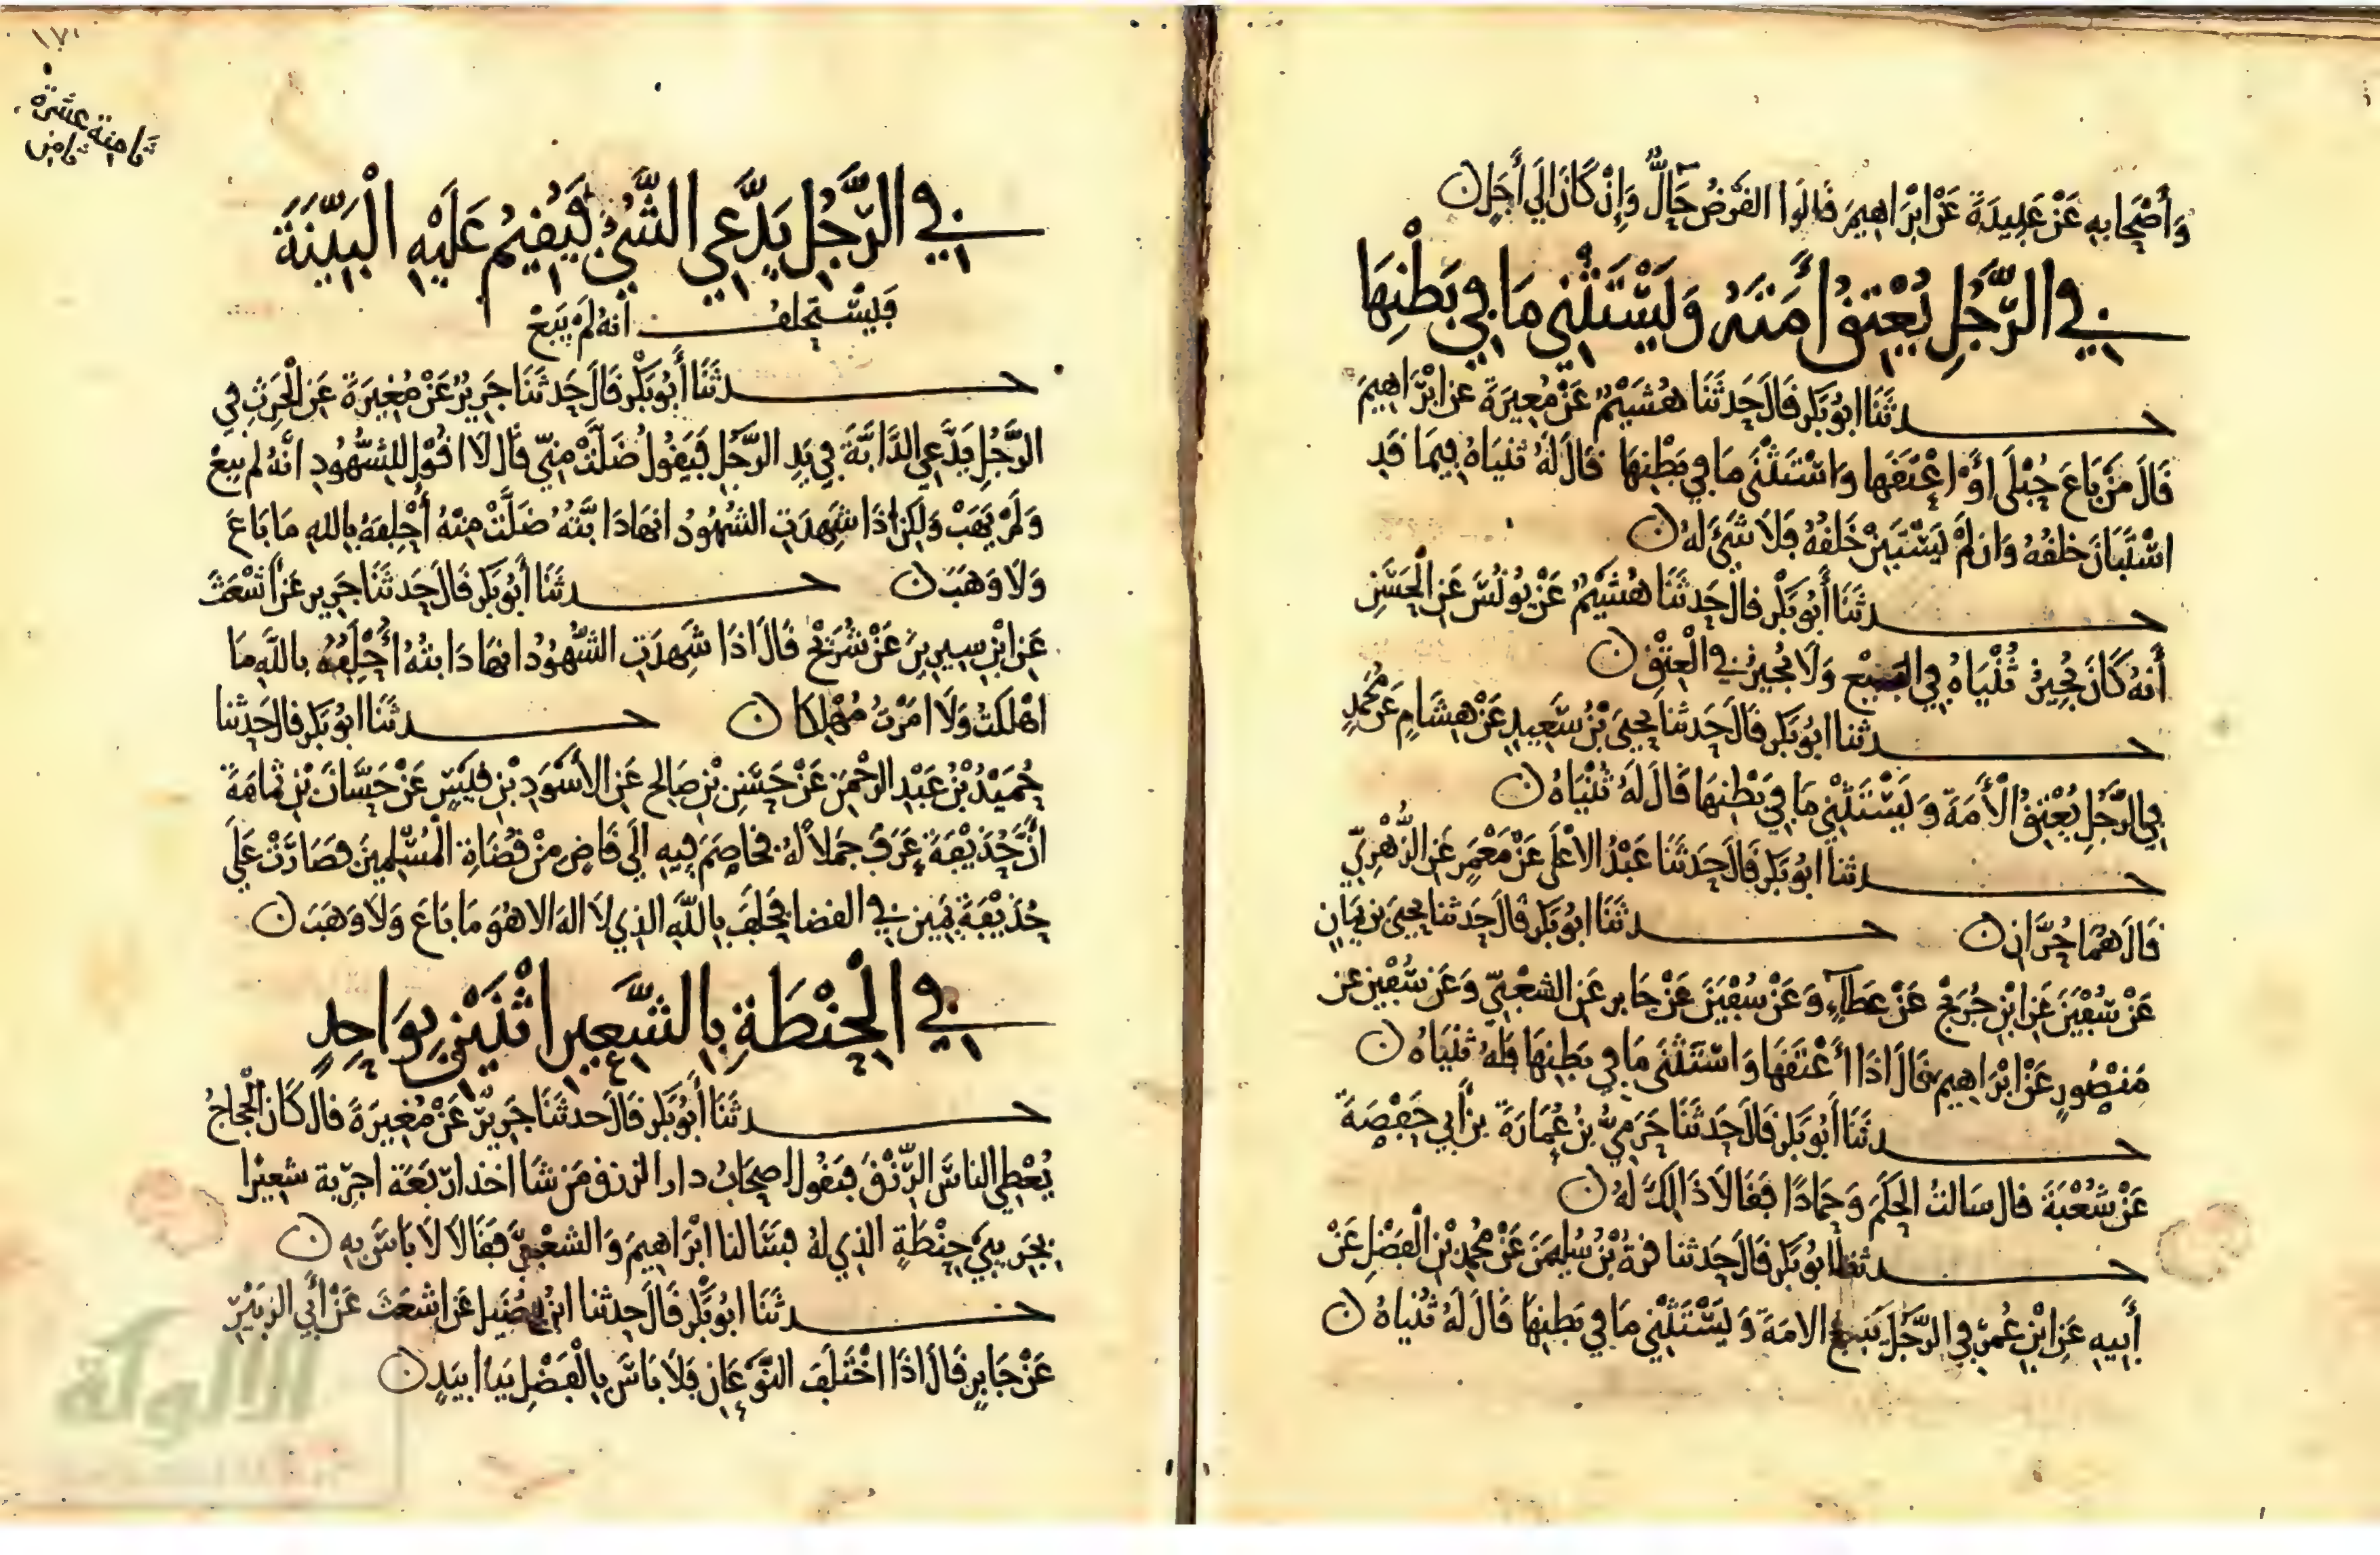 وَأَصْحَابِهِ عَنْ عَبِيدَةَ عَنْ ابْرَاهِيمَ قَالُوا القَرْضُ حَالٌّ وَإِنْ كَانَ إلَى أَجَلٍ
في الرَّجُلِ يُعْتِقُ أَمَتَهُ وَيَسْتَثْنِي مَا فِي بَطْنِهَا
حدثَنَا ابُو بَكرٍ قَالَ حَدثَنَا هُشَيْمٌ عَنْ مُغِيرَةَ عَنْ ابْرَاهِيمَ
قَالَ مَنْ بَاعَ حُبْلَى اوْ اعْتَقَهَا وَاسْتَثْنَى مَا فِي بَطْنِهَا قَالَ لَهُ ثُنْيَاهُ فِيمَا قَدِ
اسْتَبَانَ خلقُهُ وَان لَمْ يَسْتَبِنْ خَلْقُهُ فَلَا شَيْءَ لهُ
حدثَنَا أَبُو بَكْرٍ قالَ حَدثَنَا هُشَيْمٌ عَنْ يُونُسَ عَنِ الْحَسَنِ
أَنهُ كَانَ يُجِيزُ ثُنْيَاهُ فِي البَيْعِ وَلَا يُجِيزُ في الْعِتْقِ
حدثنا ابُو بَكرٍ قَالَ حَدثنَا يحيَى بْنُ سَعِيدٍ عَنْ هِشَامٍ عَنْ مُحَمدٍ
فِي الرَّجُلِ يُعْتِقُ الْأَمَةَ وَيَسْتَثْنِي مَا فِي بَطْنِهَا قَالَ لَهُ ثُنْيَاهُ
حدثنَا ابُو بَكرٍ قَالَ حَدثَنَا عَبْدُ الاعْلَى عَنْ مَعْمَرٍ عَنِ الزُّهْرِيِّ
قَالَ هُمَا حُرَّانِ حدثَنَا ابُو بَكرٍ قَالَ حَدثنا يحيَى بن يَمَانٍ
عَنْ سُفْيَنَ عَنِ ابْنِ جُرَيْجٍ عَنْ عَطَاءٍ وَعَنْ سُفْيَنَ عَنْ جَابرٍ عَنِ الشعْبِيِّ وَعَن سُفْيَن عن
مَنْصُورٍ عَنْ ابْرَاهِيمَ قَالَ اذَا أَعْتَقَهَا وَاسْتَثْنَى مَا فِي بَطْنِهَا فَلهُ ثُنْيَاهُ
حدثَنَا أَبُو بَكرٍ قَالَ حَدثَنَا حَرَمِيُّ بنُ عُمَارَةَ بن أَبِي حَفْصَةَ
عَنْ شُعْبَةَ قال سَالتُ الحَكَمَ وَحَمادًا فَقَالَا ذَالِكَ لَهُ
حدثنا ابُو بَكرٍ قَالَ حَدثنا قرةُ بْنُ سُلَيمَنَ عَنْ مُحَمدِ بْنِ الفَضْلِ عَنْ
أَبِيهِ عَنِ ابْنِ عُمَرَ فِي الرَّجُلِ يَبِيعُ الامَةَ وَيَسْتَثْنِي مَا فِي بَطنِهَا قَالَ لَهُ ثُنْيَاهُ
ثامنة عشرة
ثامن
في الرَّجُلِ يَدَّعِي الشَّيْءَ فَيُقِيمُ عَلَيْهِ الْبَيِّنَةَ
فَيُسْتَحْلَفُ أنهُ لَمْ يَبِعْ
حدثَنَا أَبُو بَكْرٍ قَالَ حَدثَنَا جَرِيرٌ عَنْ مُغِيرَةَ عَنِ الْحَرِثِ فِي
الرَّجُلِ يَدَّعِي الدَّابَّةَ فِي يَدِ الرَّجُلِ فَيَقُولُ ضَلَّتْ مِنِّي قَالَ لَا اقُوْلُ لِلشُّهُودِ انَّهُ لم يبعْ
وَلَمْ يَهَبْ وَلَكِنْ اذَا شَهِدَتِ الشُّهُودُ انهَا دَابَّتُهُ ضَلَّتْ مِنْهُ أُحْلِفهُ بِاللهِ مَا بَاعَ
وَلَا وَهَبَ حدثَنَا أَبُو بَكرٍ قَالَ حَدثَنَا جَرِير عَنْ أَشْعَثَ
عَنِ ابْنِ سِيرِينَ عَنْ شُرَيْحٍ قَالَ اذَا شَهِدَتِ الشُّهُودُ انهَا دَابتهُ أُحَلِّفُهُ بِاللَّهِ مَا
اهْلَكتُ وَلَا امَرْتُ مُهْلِكًا حدثَنَا ابُو بَكرٍ قال حَدثنا
حُمَيْدُ بْنُ عَبْدِ الرَّحْمَنِ عَنْ حَسَنِ بْنِ صَالِحٍ عَنِ الأَسْوَدِ بْنِ قَيْسٍ عَنْ حَسَّانَ بْنِ ثمَامَةَ
أَنَّ حُذَيْفَةَ عَرَفَ جَمَلًا لهُ فخَاصَمَ فِيهِ إلَى قَاضٍ مِنْ قُضَاةِ الْمُسْلِمِينَ فصَارَتْ عَلَى
حُذَيْفَةَ يَمِينٌ في القضا فحَلَفَ بِاللَّهِ الذِي لَا الهَ الا هُوَ مَا بَاعَ وَلَا وَهَبَ
في الْحِنْطَةِ بِالشَّعِيرِ اثْنَيْنِ بِوَاحِدٍ
حدثَنَا أَبُو بَكرٍ قَالَ حَدثَنَا جَرِيرٌ عَنْ مُغِيرَةَ قالَ كَانَ الْحَجاجُ
يُعْطِي الناسَ الرِّزْقَ فيقُول اصحَابُ دار الرزق مَن شَا اخذ ارْبَعَة اجرِبة شعِيرًا
بجَرِيبَيْ حِنْطَةٍ الذِي لهُ فسَالنا ابْرَاهِيمَ وَالشعْبِيَّ فقَالَا لَا بَاسَ بِهِ
حدثَنَا ابُو بَكْرٍ قَالَ حدثنا ابنُ فُضَيلٍ عَن اشعَثَ عَنْ أَبِي الزبَيْرِ
عَنْ جَابِرٍ قَالَ اذَا اخْتَلَفَ النَّوْعَانِ فَلَا بَاسَ بِالْفَضْلِ يَدًا بيَدٍ
الألوكة